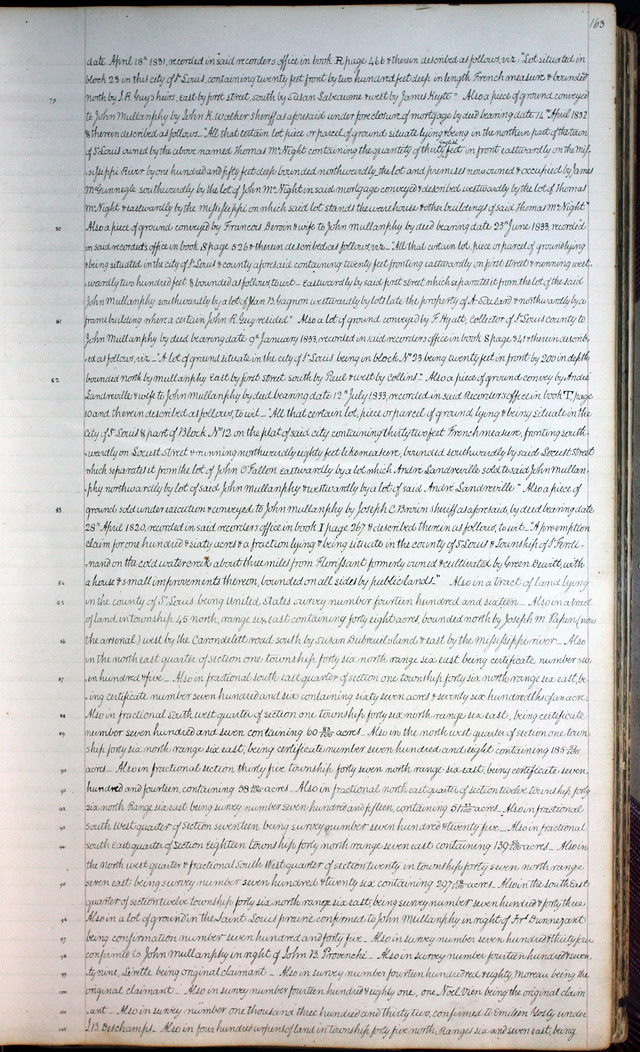 163
date April 18th 1831, recorded in said recorders office in book R page 466 & therein described as follows, viz "Lot situated in
block 23 in this city of St Louis, containing twenty feet front by two hundred feet deep in length French measure & bounded
79 north by J. R. Guy's heirs, east by first street, south by Susan Labeaume & west by James Keyte" Also a piece of ground conveyed
to John Mullanphy by John K. Walker sheriff as aforesaid under foreclosure of mortgage by deed bearing date 14th April 1832
& therein described as follows "All that certain lot piece or parcel of ground situate lying & being in the northern part of the town
of St Louis owned by the above named Thomas McNight containing the quantity of thirty feet in front eastwardly on the Mis-
-sissippi River by one hundred and fifty feet deep bounded northwardly, the lot and premises now owned & occupied by James
McGunnegle southwardly by the lot of John McNight in said mortgage conveyed & described westwardly by the lot of Thomas
McNight & eastwardly by the Mississippi on which said lot stands the warehouse & other buildings of said Thomas McNight"
80 Also a piece of ground conveyed by Francois Deroin & wife to John Mullanphy by deed bearing date 25th June 1833, recorded
in said recorders office in book S page 526 & therein described as follows viz "All that certain lot, piece or parcel of ground lying
& being situated in the city of St Louis & county aforesaid containing twenty feet fronting eastwardly on first street & running west-
wardly two hundred feet & bounded as follows to wit Eastwardly by said first street which separates it from the lot of the said
John Mullanphy southwardly by a lot of Jean B. Gagnon westwardly by lots late the property of A. Galand & northwardly by a
81 frame building where a certain John R. Guy resided" Also a lot of ground conveyed by F. Hyatt, collector of St Louis county to
John Mullanphy by deed bearing date 9th January 1833, recorded in said recorders office in book S page 341 & therein describ-
-ed as follows, viz "A lot of ground situate in the city of St Louis being in block No 23 being twenty feet in front by 200 in depth
82 bounded north by Mullanphy East by first street south by Paul & west by Collins" Also a piece of ground convey by André
Landreville & wife to John Mullanphy by deed bearing date 12th July 1833, recorded in said Recorders office in book T, page
10 and therein described as follows, to wit "All that certain lot, piece or parcel of ground lying & being situate in the
city of St Louis & part of Block No 12 on the plat of said city containing thirty two feet French measure, fronting south
wardly on Locust Street & running northwardly eighty feet like measure, bounded southwardly by said Locust Street
which separates it from the lot of John O'Fallon Eastwardly by a lot which André Landreville sold to said John Mullan-
-phy northwardly by lot of said John Mullanphy & westwardly by a lot of said André Landreville" Also a piece of
83 ground sold under execution & conveyed to John Mullanphy by Joseph C. Brown sheriff as aforesaid, by deed bearing date
28th April 1820, recorded in said recorders office in book I page 267 & described therein as follows, to wit "A preemption
claim for one hundred & sixty acres & a fraction lying & being situate in the county of St Louis & Township of St Ferdi-
nand on the cold water creek about three miles from Florissant formerly owned & cultivated by Green Dewitt, with
84 a house & small improvements thereon, bounded on all sides by public lands." Also in a tract of land lying
85 in the county of St Louis being United States survey number fourteen hundred and sixteen Also in a tract
of land in township 45 north, range six east containing forty eight acres, bounded north by Joseph M. Papin (now
86 the arsenal) west by the Carondelett road south by Susan Dubreuils land & east by the Mississippi river Also
in the north east quarter of section one township forty six north range six east being certificate number sev-
87 en hundred & five Also in fractional south east quarter of section one township forty six north range six east, be-
ing certificate number seven hundred and six containing sixty seven acres & seventy six hundredths of an acre
88 Also in fractional south west quarter of section one township forty six north range six east, being certificate
89 number seven hundred and seven containing 60 acres Also in the north west quarter of section one town
ship forty six north range six east, being certificate number seven hundred and eight containing 185 acres
90 acres Also in fractional section thirty five township forty seven north range six east, being certificate seven
91 hundred and fourteen, containing 58 acres Also in fractional north east quarter of section twelve township forty
92 six north Range six east being survey number seven hundred and fifteen, containing 51 acres Also in fractional
93 south west quarter of Section seventeen being survey number seven hundred & twenty five Also in fractional
94 south east quarter of Section Eighteen township forty north range seven east containing 139 acres Also in
the north west quarter & fractional South West quarter of section twenty in township forty seven north range
95 seven east being survey number seven hundred & twenty six containing 297 acres Also in the South East
quarter of section twelve township forty six north range six east being survey number seven hundred & forty three
96 Also in a lot of ground in the Saint Louis prairie confirmed to John Mullanphy in right of Fr. Dunnegant
97 being confirmation number seven hundred and forty five Also in survey number seven hundred & thirty four
98 confirmed to John Mullanphy in right of John B. Provenche Also in survey number fourteen hundred & seven-
99 ty nine, Lirette being original claimant Also in survey number fourteen hundred & eighty, Moreau being the
100 original claimant Also in survey number fourteen hundred & eighty one, one Noel Vien being the original claim
101 ant Also in survey number one thousand three hundred and thirty two, confirmed to Emilien Yosty under
102 J. B. Deschamps Also in four hundred arpens of land in township forty five north, Ranges six and seven east, being